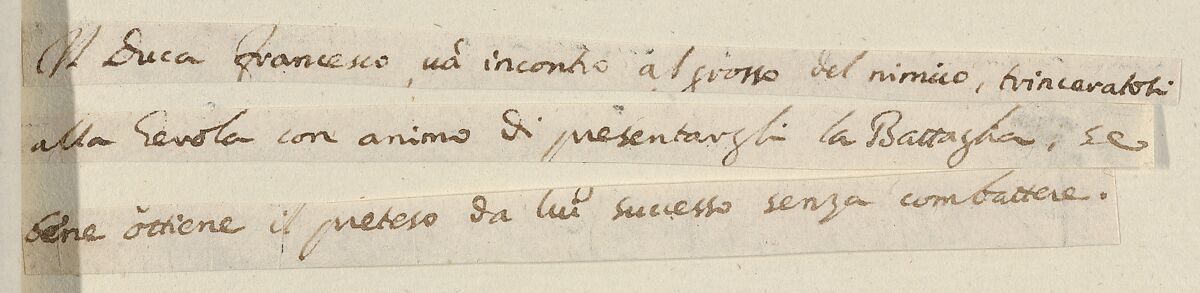 Il Duca Francesco, và incontro al grosso del nimico, trinceratosi
alla con animo di presentargli la Battaglia, se
bene ottiene il preteso da lui successo senza combattere.